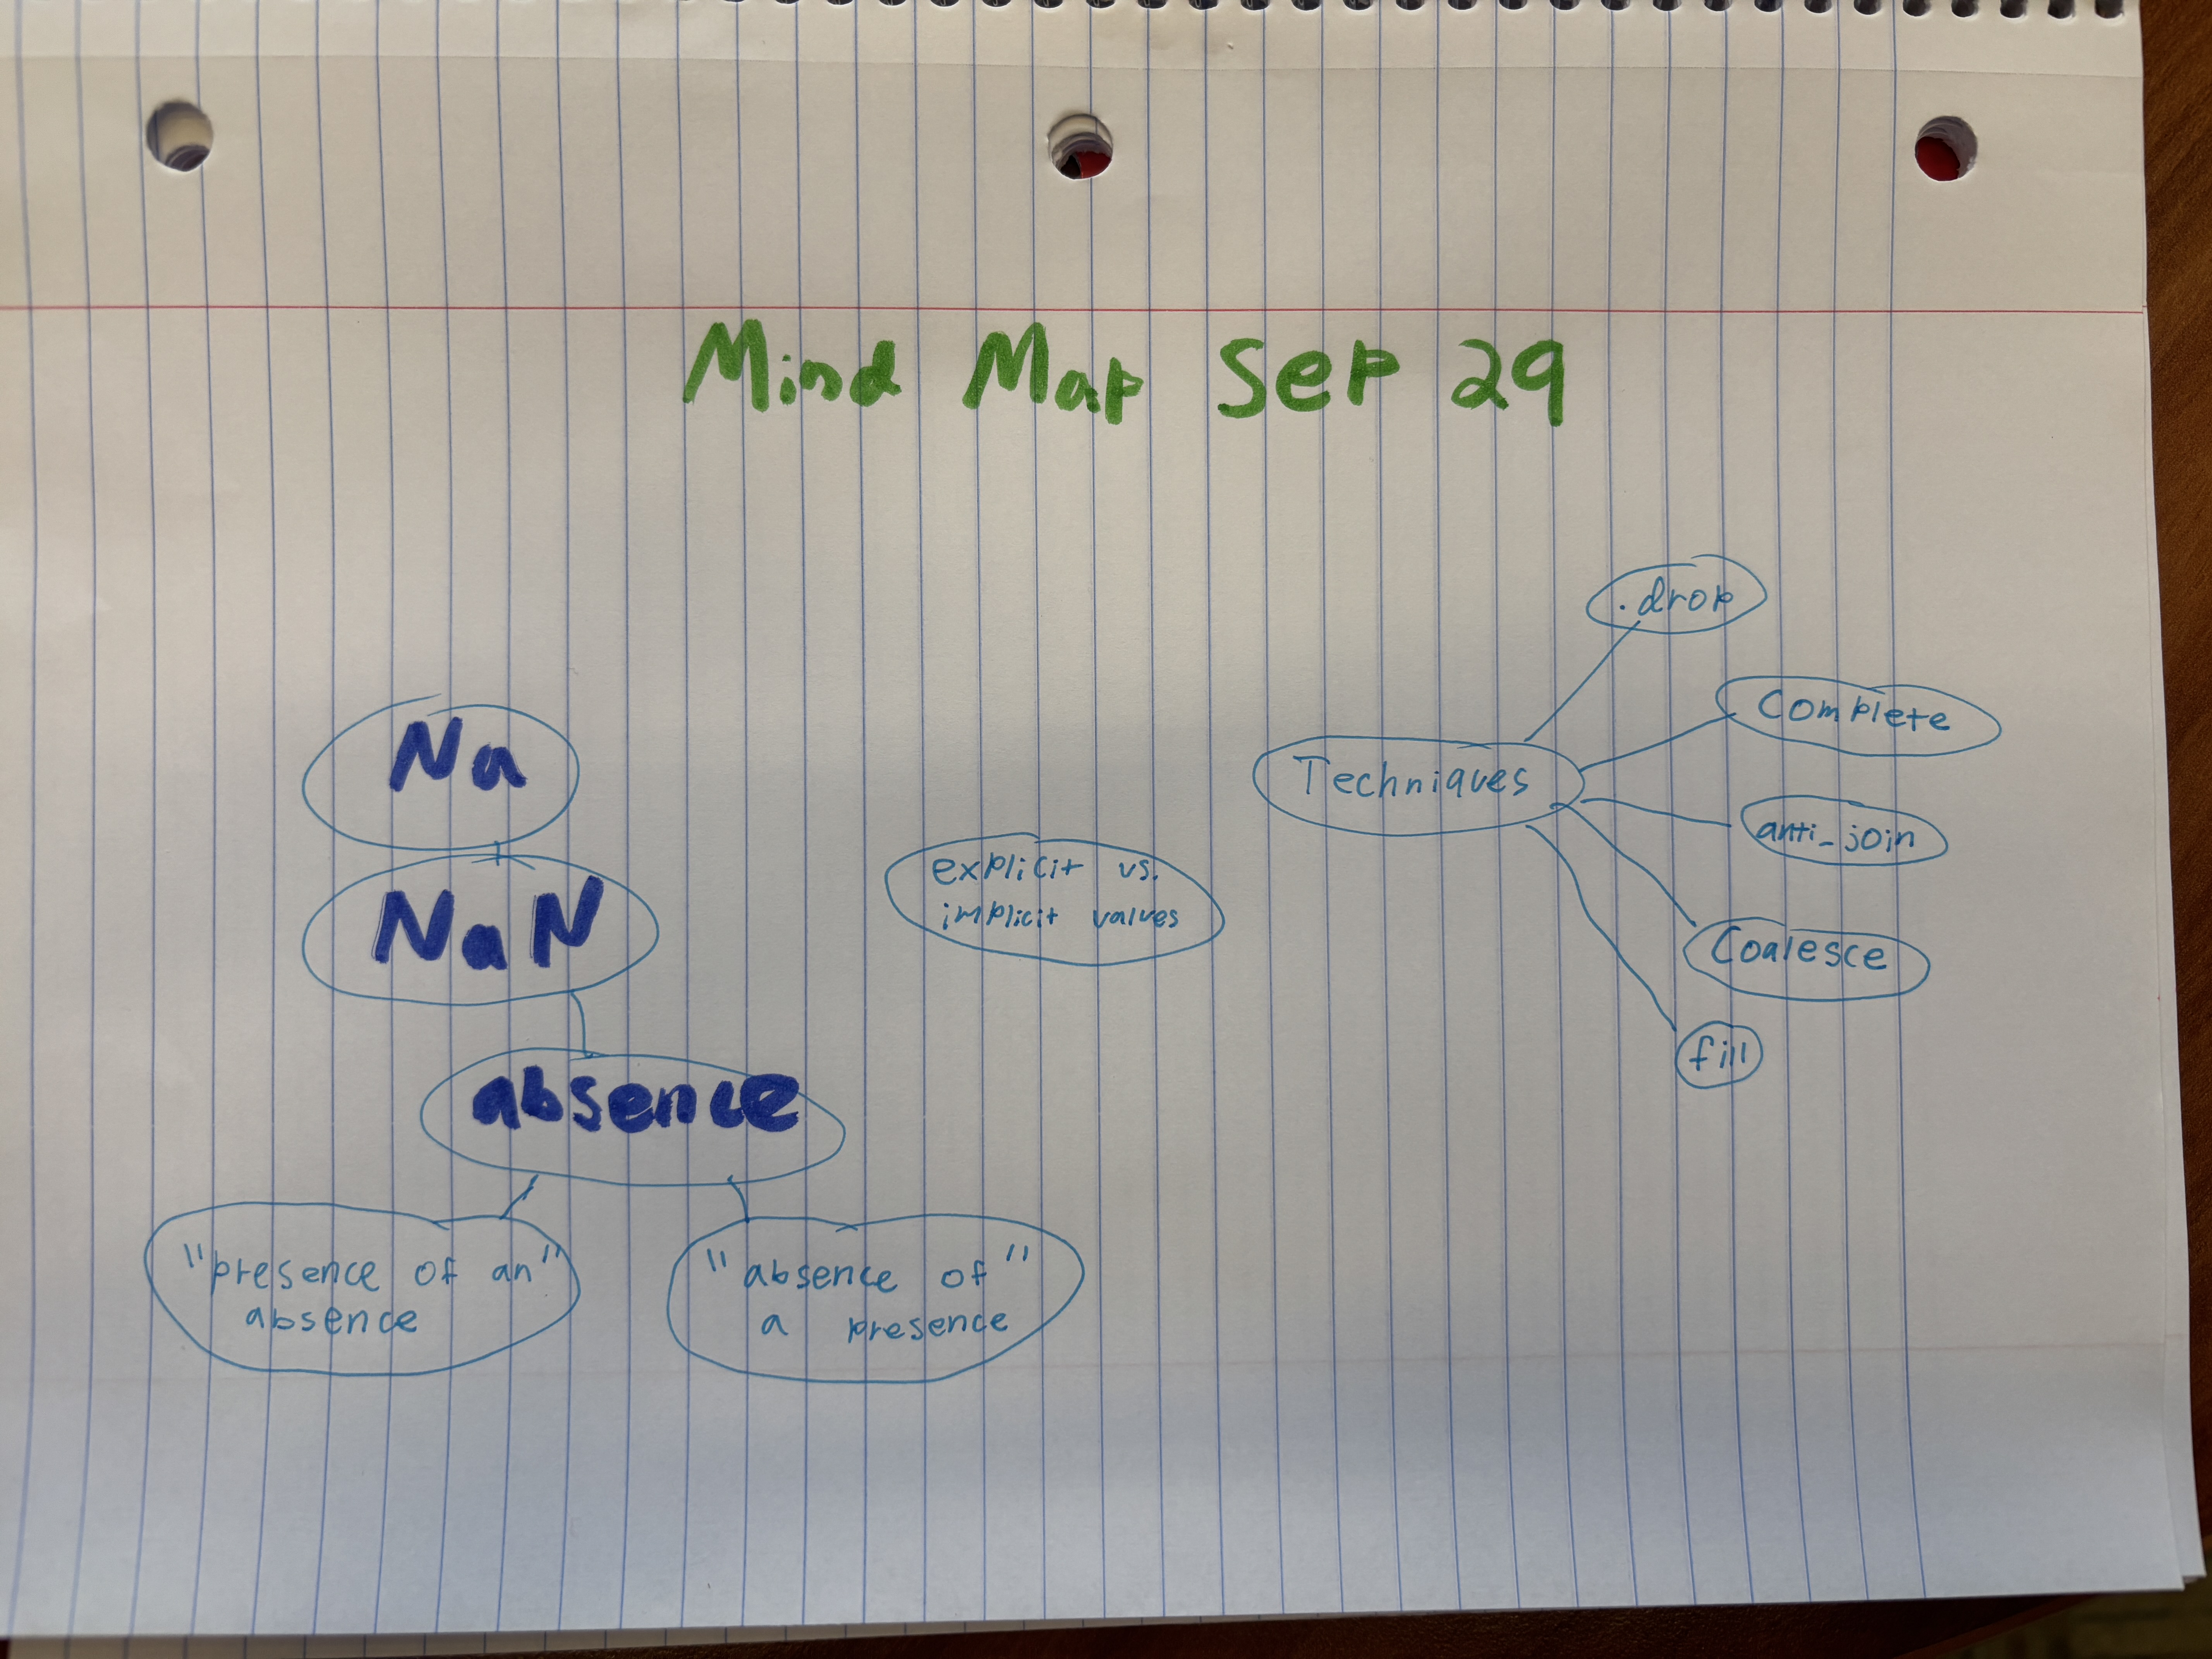 Mind Map Sep 29
Na
NaN
absence
"presence of an"
absence
"absence of"
a presence
explicit vs.
implicit values
Techniques
.drop
Complete
anti-join
Coalesce
fill